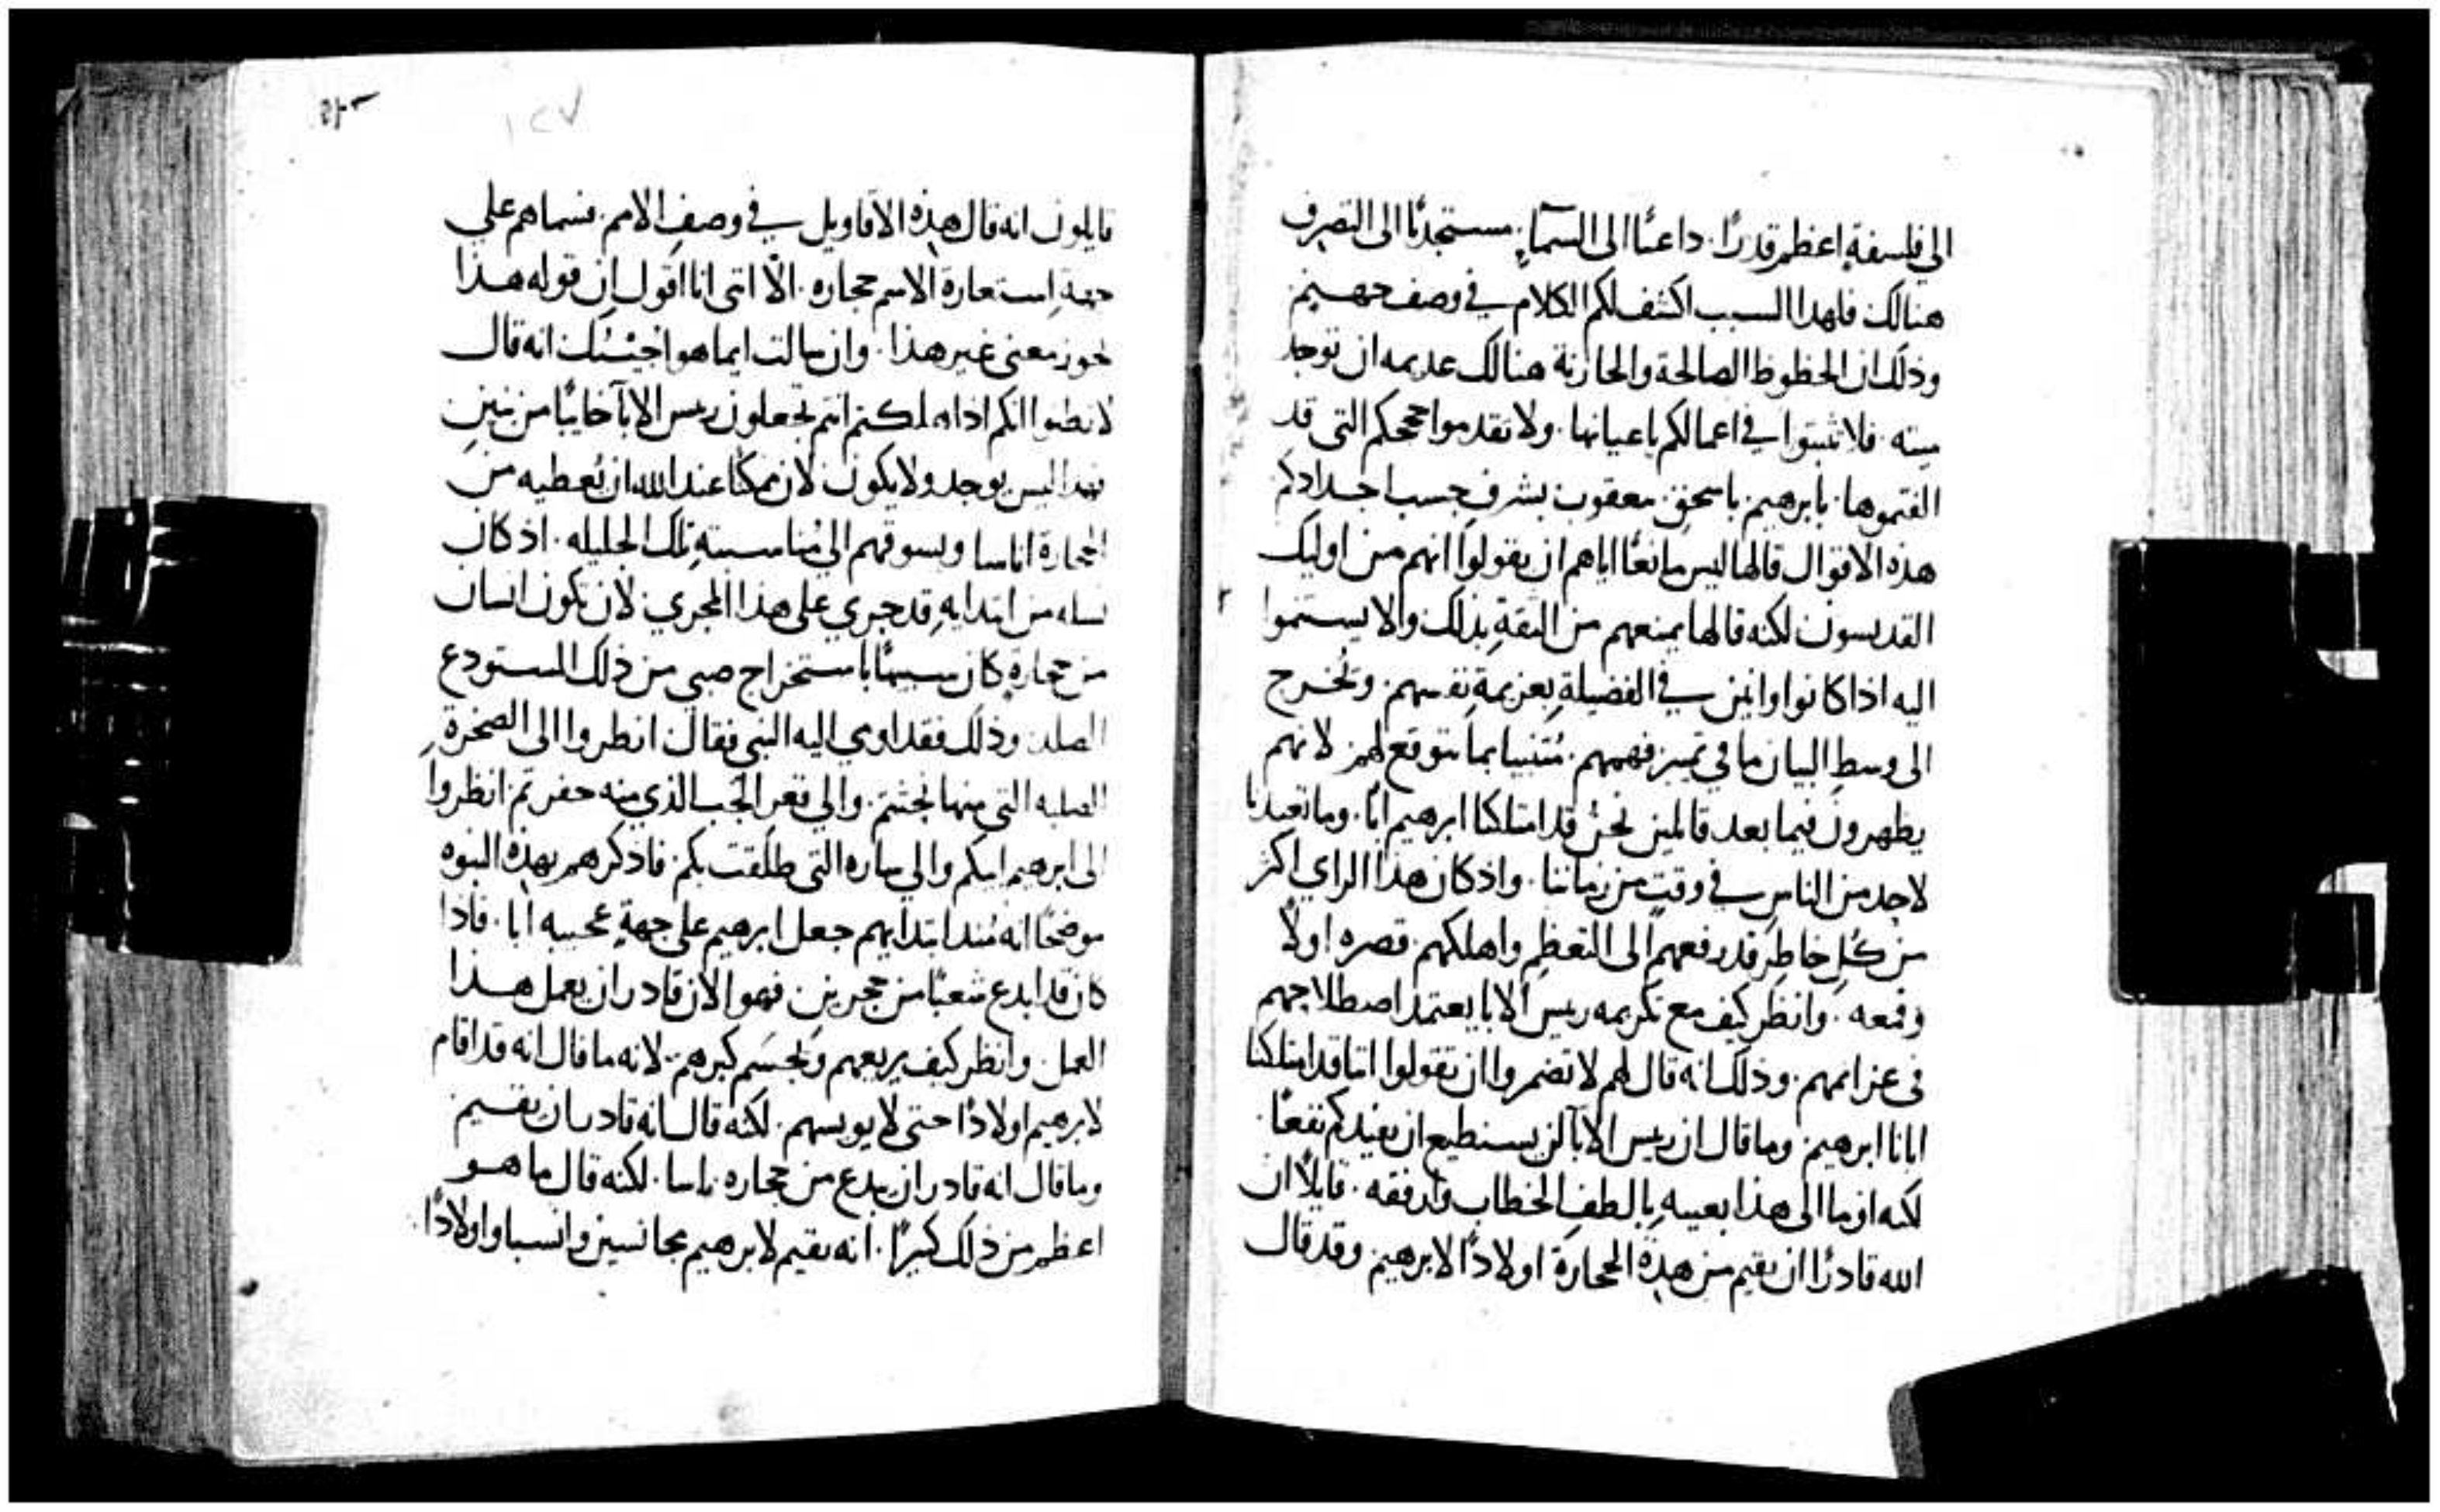 الي فلسفةٍ اعظم قدرًا. داعيًا الى السمآءِ. مستجدبًا الى التصرف
هنالك فلهدا السبب اكشف لكم الكلام في وصف جهنم
وذلك ان الحظوظ الصالحة والحازنة هنالك عديمه ان توجد
ميته. فلا تثبتوا في اعمالكم باعيانها. ولا تقدموا حججكم التي قد
الفتموها. بابرهيم باسحق بيعقوب بشرف حسب اجدادكم
هذه الاقوال قالها ليس مانعًا اياهم ان يقولوا انهم من اوليك
القديسون لكنه قالها يمنعهم من الثقةِ بذلك والا يستنموا
اليه اذا كانوا وانين في الفضيلةِ بعزيمةِ نفسهم. وتخرج
الى وسط البيان ما في تميز فهمهم. متنبيا بما يتوقع لهم لانهم
يظهرون فيما بعد قالمين نحن قد امتلكنا ابرهيم ابًا. وما تعبدنا
لاحدٍ من الناس في وقتٍ من زماننا. واذ كان هدا الراي اكثر
من كل خاطرٍ قد رفعهم الى التعظم واهلكهم. قصره اولًا
وقمعه. وانظر كيف مع تكريمه ريس الابا يعتمد اصطلاحهم
في عزايمهم. وذلك انه قال لهم لا تضمروا ان تقولوا اننا قد امتلكنا
ابانا ابرهيم. وما قال ان ريس الابآ لن يستطيع ان يفيدكم نفعًا.
لكنه اوما الى هذا بعينهِ بالطف الخطاب وارفقه. قايلًا ان
الله قادرًا ان يقيم من هذه الحجارة اولادًا لابرهيم وقد قال
١٢٧
قايلون انه قال هذه الاقاويل في وصف الامم. فسماهم على
جهة استعارة الاسم حجاره. الّا انني انا اقول ان قوله هذا
يحوز معنى غير هذا. وان سالت ايما هو اجبتك انه قال
لا تظنوا انكم اذا هلكتم انتم تجعلون ريس الابآ خايبًا من بنينٍ
فهدا ليس يوجد ولا يكون لان ممكنًا عند الله ان يُعطيه من
الحجارة اناسا ويسوقهم الي مُناسبتهِ تلك الجليله. اذ كان
نسله من ابتدايهِ قد جري على هذا المجري. لان تكون انسان
من حجارةٍ كان شبيهًا باستخراج صبي من ذلك المستودع
الصلد. وذلك فقد اومي اليه النبي فقال انظروا الى الصخرةِ
الصلبه التي منها نحتتم. والي قعر الجب الذي منه حفرتم. انظروا
الى ابرهيم ابيكم والي ساره التي طلقت بكم. فاذكرهم بهذه النبوه
موضحًا انه مند ابتدايهم جعل ابرهيم على جهةٍ عجيبه ابا. فاذا
كان قد ابدع شعبًا من حجرينِ فهو الان قادر ان يعمل هذا
العمل. وانظر كيف يريعهم ويحسم كبرهم. لانه ما قال انه قد اقام
لابرهيم اولادًا حتى لا يويسهم. لكنه قال انه قادر ان يقيم
وما قال انه قادر ان يبدع من حجاره ناسا. لكنه قال ما هو
اعظم من ذلك كثيرًا. انه يقيم لابرهيم مجانسين وانسبا واولادًا.